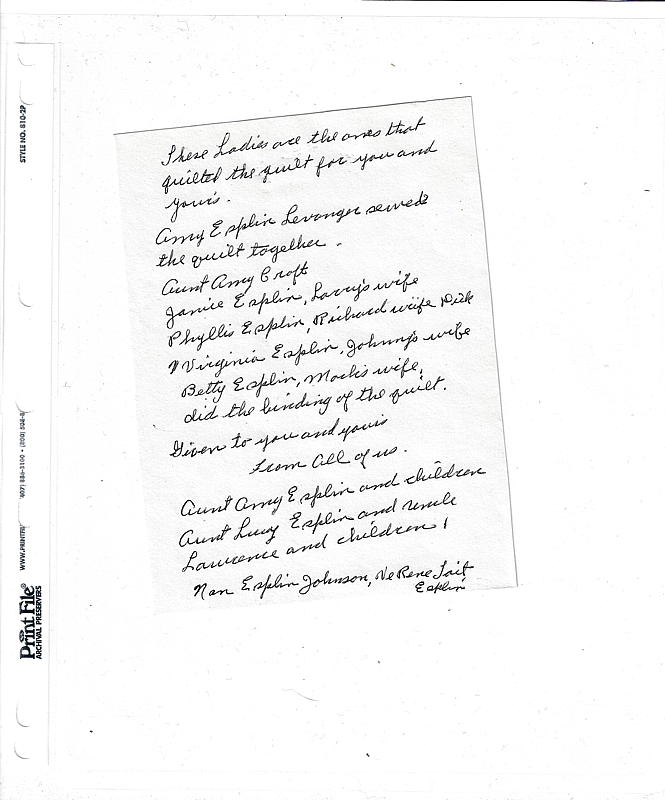 These Ladies are the ones that
quilted the quilt for you and
yours.
Amy Esplin Levanger sewed
the quilt together.
Aunt Amy Croft
Janice Esplin, Larry's wife
Phyllis Esplin, Richard wife Dick
Virginia Esplin, Johnny's wife
Betty Esplin, Mack's wife,
did the binding of the quilt.
Given to you and yours
From All of us.
Aunt Amy Esplin and children
Aunt Lucy Esplin and uncle
Lawrence and children!
Nan Esplin Johnson, VeRene Tait
Esplin
STYLE NO. 810-2P
WWW.PRINTFILE
Print File®
ARCHIVAL PRESERVERS